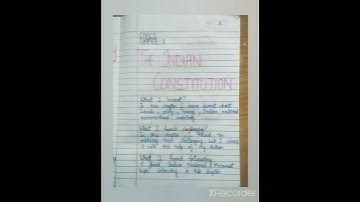 CIVICS
CHAPTER-1
THE INDIAN
CONSTITUTION
What I learnt?
In this chapter I have learnt about
National
movement
What I found challenging?
In this chapter I found the
challenging but I solved
it with the help of my father
What I found Interesting
I found Indian National Movement
interesting in this chapter
XRecorder